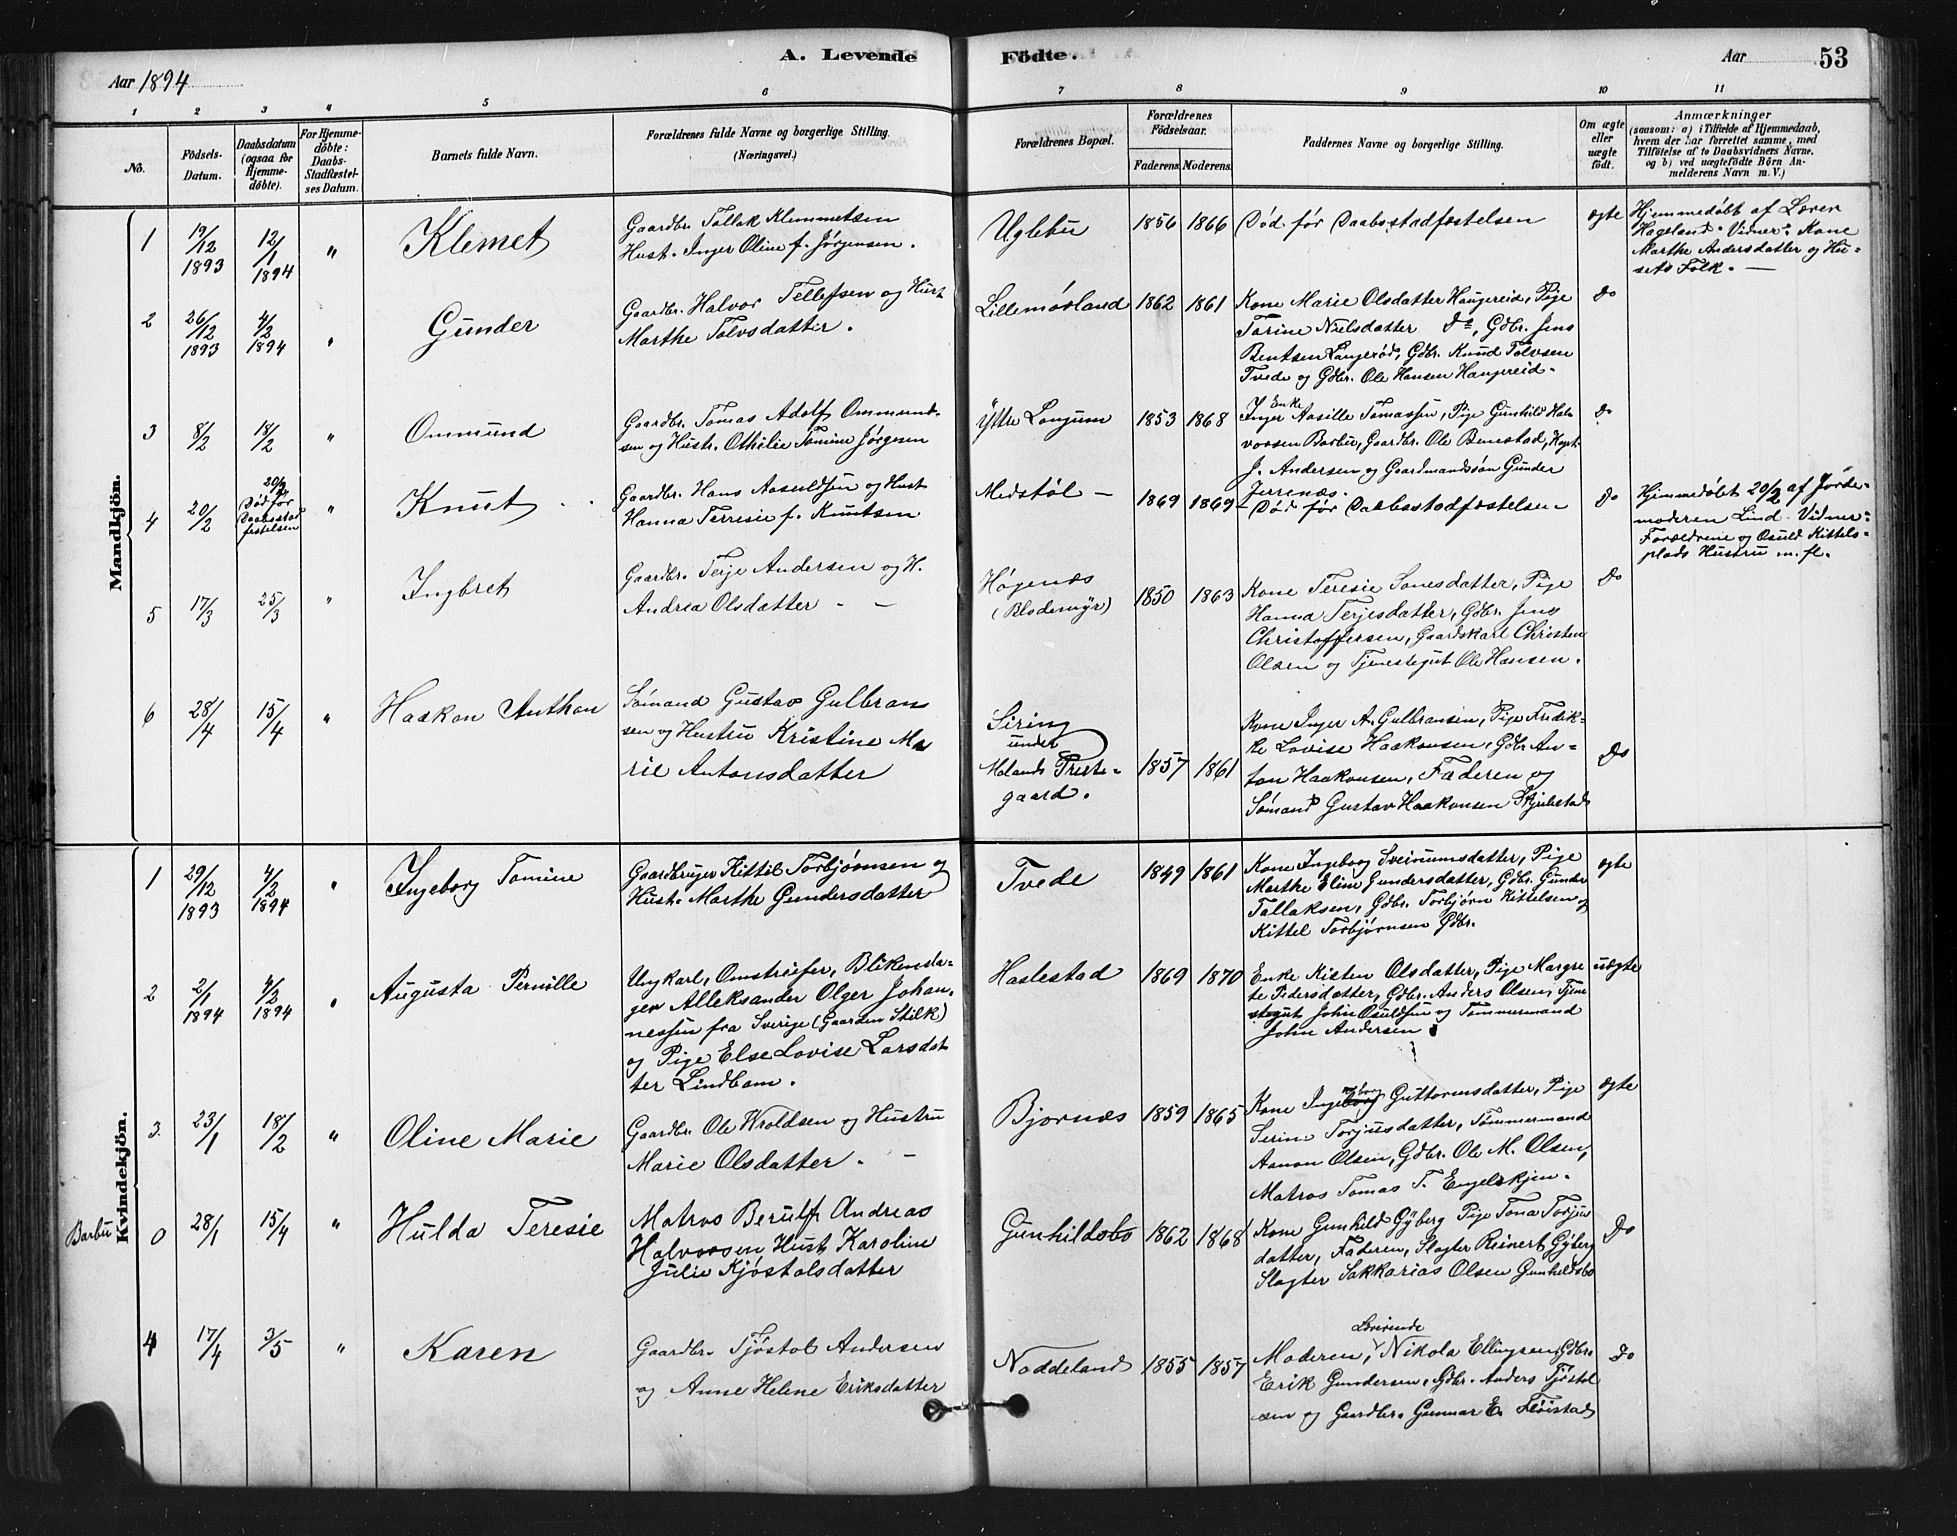 A. Levende Födte.
Aar 1894
Aar
53
1 2 3 " 5 6 7 8 9 10 11
No.
Födsels-Datum.
Daabsdatum (ogsaa for Hjemme-döbte).
For Hjemme-döbte: Daabs-Stadfæstel-ses Datum.
Barnets fulde Navn.
Forældrenes fulde Navne og borgerlige Stilling. (Næringsvei.)
Forældrenes Bopæl.
Forældrenes Födselsaar.
Faderens. Moderens.
Faddernes Navne og borgerlige Stilling.
Om ægte eller uægte födt.
Anmærkninger
(saasom: a) i Tilfælde af Hjemmedaab,
hvem der har forrettet samme, med
Tilföielse af to Daabsvidners Navne,
og b) ved uægtefödte Börn An-
melderens Navn m. V.)
Mandkjön.
1 19/12 1893 12/1 1894 " Klemet
Gaardbr. Tallak Klemmetsen
Hust. Inger Oline f. Jørgensen.
Uglebu 1856 1866 Død før Daabsstadfæstelsen ægte
Hjemmedøbt af Lærer
Hageland. Vidner: Kone
Marthe Andersdatter og Hu-
sets Folk. —
2 26/12 1893 4/2 1894 " Gunder
Gaardbr. Halvor Tellefsen og Hust
Marthe Tolvsdatter.
Lillemøsland 1862 1861
Kone Marie Olsdatter Haugereid, Pige
Torine Nielsdatter Do, Gdbr. Jens
Bentsen Langerød, Gdbr. Knud Tolvsen
Tvede og Gdbr. Ole Hansen Haugereid.
Do
3 8/2 18/2 " Ommund
Gaardbr. Tomas Adolf Ommund-
sen og Hustr. Othilie Tomine Jørgsen
Yttre Longum 1853 1868
Enke
Inger Aasille Tomassen, Pige Gunhild Hal-
vorsen Barbu, Gaardbr. Ole Benestad, Hapt.
J. Andersen og Gaardmandssøn Gunder
Jerrenæs.
Do
4 20/2 20/2 Død før Daabsstadfæstelsen " Knut
Gaardbr. Hans Aasuldsen og Hust
Hanna Terresie f. Knutsen
Medstøl — 1869 1869 Død før Daabsstadfæstelsen Do
Hjemmedøbt 20/2 af Jorde-
moderen Lind. Vidner:
Forældrene og Osuld Kittels-
plads Hustru m. fl.
5 17/3 25/3 " Ingbret
Gaardbr. Terje Andersen og H.
Andrea Olsdatter - -
Høgenæs
(Blodemyr)
1850 1863
Kone Teresie Tonesdatter, Pige
Hanna Terjesdatter, Gdbr. Jens
Christoffersen, Gaardskarl Christen
Olsen og Tjenestegut Ole Hansen.
Do
6 28/4 15/4 " Haakon Anthon
Sømand Gustav Gulbran
sen og Hustru Kristine Ma
rie Antonsdatter
Siring
under
Molands Præste-
gaard.
1857 1861
Kone Inger A. Gulbransen, Pige Fredik-
ke Lovise Haakonsen, Gdbr An-
ton Haakonsen, Faderen og
Sømand Gustav Haakonsen Skjulestad
Do
Kvindekjön.
1 29/12 1893 4/2 1894 " Ingeborg Tomine
Gaardbruger Kittil Torbjørnsen og
Hust. Marthe Gundersdatter
Tvede 1849 1861
Kone Ingeborg Sveinumsdatter, Pige
Marthe Eline Gundersdatter, Gdbr. Gunder
Tallaksen, Gdbr. Torbjørn Kittelsen og
Kittel Torbjørnsen Gdbr.
ægte
2 2/1 1894 4/2 1894 " Augusta Pernille
Ungkarl, Omstreifer, Blikensla-
ger Alleksander Olger Johan-
nessen fra Sverige (Gaarden Stilk)
og Pige Else Lovise Larsdat
ter Lindbam.
Haslestad 1869 1870
Enke Kisten Olsdatter, Pige Margre
te Pedersdatter, Gdbr. Anders Olsen, Tjene
stegut John Osuldsen og Tømmermand
John Andersen
uægte
3. 23/1 18/2 " Oline Marie
Gaardbr. Ole Kroldsen og Hustru
Marie Olsdatter. -
Bjornæs 1859 1865
Kone Ingeborg Guttormsdatter, Pige
Serine Torjusdatter, Tømmermand
Aanon Olsen, Gdbr. Ole M. Olsen,
Matros Tomas T. Engelskjen.
ægte
Barbu 0 28/1 15/4 " Hulda Teresie
Matros Berulf Andreas
Halvorsen, Hust Karoline
Julie Kjøstolsdatter
Gunhildsbo 1862 1868
Kone Gunhild Gyberg Pige Tona Torju
datter, Faderen, Slagter Reinert Gyberg
Slagter Sakkarias Olsen Gunhildsbo
Do
4 17/4 3/5 " Karen
Gaardbr. Tjøstol Andersen
og Anne Helene Eriksdatter
Noddeland 1855 1857
Lærerinde
Moderen, Nikola Ellingsen, Gdbr.
Erik Gundersen, Gdbr. Anders Tjøstol
sen og Gaardbr. Gunnar E. Fløistad
Do